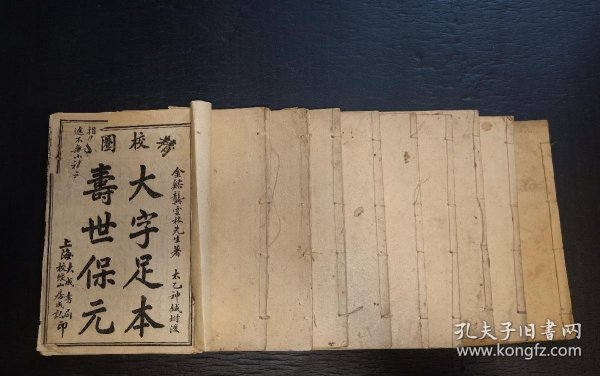 校圈
金谿龔雲林先生著 太乙神鍼附後
大字足本
壽世保元
上海大成書局
印
孔夫子旧书网
www.kongfz.com